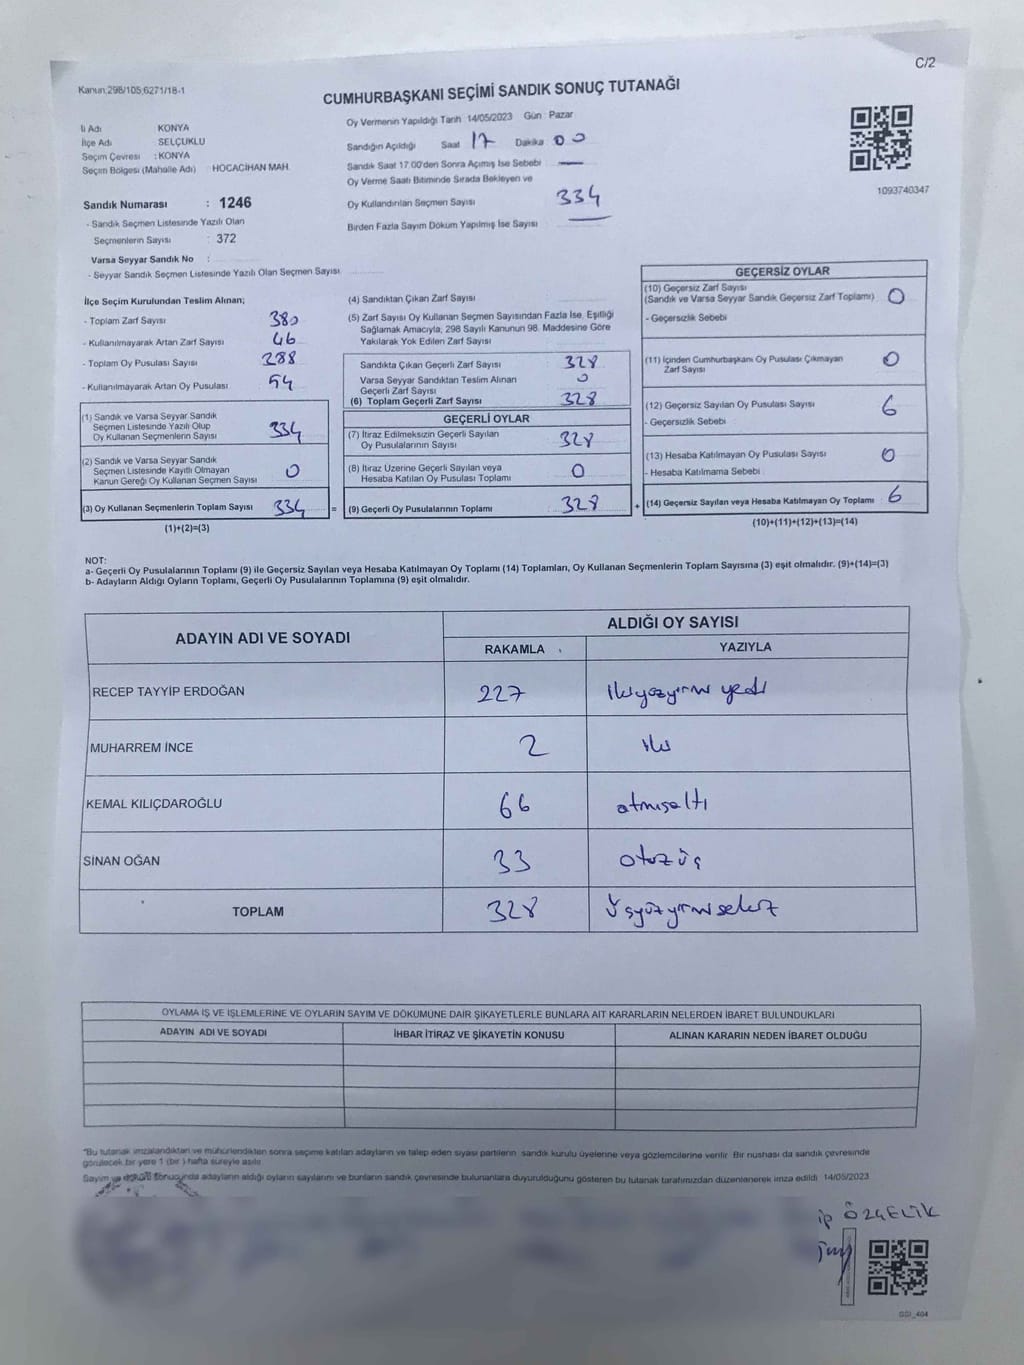 C/2
Kanun;298/105;6271/18-1
CUMHURBAŞKANI SEÇİMİ SANDIK SONUÇ TUTANAĞI
İl Adı KONYA
İlçe Adı SELÇUKLU
Seçim Çevresi : KONYA
Seçim Bölgesi (Mahalle Adı) HOCACİHAN MAH.
Sandık Numarası : 1246
- Sandık Seçmen Listesinde Yazılı Olan
Seçmenlerin Sayısı : 372
Varsa Seyyar Sandık No :
- Seyyar Sandık Seçmen Listesinde Yazılı Olan Seçmen Sayısı
Oy Vermenin Yapıldığı Tarih 14/05/2023 Gün : Pazar
Sandığın Açıldığı Saat 17 Dakika 00
Sandık Saat 17.00'den Sonra Açımış İse Sebebi —
Oy Verme Saati Bitiminde Sırada Bekleyen ve
Oy Kullandırılan Seçmen Sayısı 334
Birden Fazla Sayım Döküm Yapılmış İse Sayısı —
1093740347
İlçe Seçim Kurulundan Teslim Alınan;
- Toplam Zarf Sayısı 380
- Kullanılmayarak Artan Zarf Sayısı 46
- Toplam Oy Pusulası Sayısı 288
- Kullanılmayarak Artan Oy Pusulası 54
(1) Sandık ve Varsa Seyyar Sandık
Seçmen Listesinde Yazılı Olup
Oy Kullanan Seçmenlerin Sayısı 334
(2) Sandık ve Varsa Seyyar Sandık
Seçmen Listesinde Kayıtlı Olmayan
Kanun Gereği Oy Kullanan Seçmen Sayısı 0
(3) Oy Kullanan Seçmenlerin Toplam Sayısı 334
(1)+(2)=(3)
(4) Sandıktan Çıkan Zarf Sayısı
(5) Zarf Sayısı Oy Kullanan Seçmen Sayısından Fazla İse, Eşitliği
Sağlamak Amacıyla, 298 Sayılı Kanunun 98. Maddesine Göre
Yakılarak Yok Edilen Zarf Sayısı
Sandıkta Çıkan Geçerli Zarf Sayısı 328
Varsa Seyyar Sandıktan Teslim Alınan
Geçerli Zarf Sayısı 0
(6) Toplam Geçerli Zarf Sayısı 328
GEÇERLİ OYLAR
(7) İtiraz Edilmeksizin Geçerli Sayılan
Oy Pusulalarının Sayısı 328
(8) İtiraz Üzerine Geçerli Sayılan veya
Hesaba Katılan Oy Pusulası Toplamı 0
= (9) Geçerli Oy Pusulalarının Toplamı 328 +
GEÇERSİZ OYLAR
(10) Geçersiz Zarf Sayısı
(Sandık ve Varsa Seyyar Sandık Geçersiz Zarf Toplamı) 0
- Geçersizlik Sebebi
(11) İçinden Cumhurbaşkanı Oy Pusulası Çıkmayan
Zarf Sayısı 0
(12) Geçersiz Sayılan Oy Pusulası Sayısı 6
- Geçersizlik Sebebi
(13) Hesaba Katılmayan Oy Pusulası Sayısı 0
- Hesaba Katılmama Sebebi
(14) Geçersiz Sayılan veya Hesaba Katılmayan Oy Toplamı 6
(10)+(11)+(12)+(13)=(14)
NOT:
a- Geçerli Oy Pusulalarının Toplamı (9) ile Geçersiz Sayılan veya Hesaba Katılmayan Oy Toplamı (14) Toplamları, Oy Kullanan Seçmenlerin Toplam Sayısına (3) eşit olmalıdır. (9)+(14)=(3)
b- Adayların Aldığı Oyların Toplamı, Geçerli Oy Pusulalarının Toplamına (9) eşit olmalıdır.
ADAYIN ADI VE SOYADI ALDIĞI OY SAYISI
RAKAMLA YAZIYLA
RECEP TAYYİP ERDOĞAN 227 ikiyüzyirmi yedi
MUHARREM İNCE 2 iki
KEMAL KILIÇDAROĞLU 66 atmışaltı
SİNAN OĞAN 33 otuz üç
TOPLAM 328 üçyüzyirmisekiz
OYLAMA İŞ VE İŞLEMLERİNE VE OYLARIN SAYIM VE DÖKÜMÜNE DAİR ŞİKAYETLERLE BUNLARA AİT KARARLARIN NELERDEN İBARET BULUNDUKLARI
ADAYIN ADI VE SOYADI İHBAR İTİRAZ VE ŞİKAYETİN KONUSU ALINAN KARARIN NEDEN İBARET OLDUĞU
*Bu tutanak imzalandıktan ve mühürlendikten sonra seçime katılan adayların ve talep eden siyasi partilerin sandık kurulu üyelerine veya gözlemcilerine verilir. Bir nushası da sandık çevresinde
görülecek bir yere 1 (bir ) hafta süreyle asılır.
Sayım ve döküm sonucunda adayların aldığı oyların sayılarını ve bunların sandık çevresinde bulunanlara duyurulduğunu gösteren bu tutanak tarafımızdan düzenlenerek imza edildi 14/05/2023
ip ÖZÇELİK